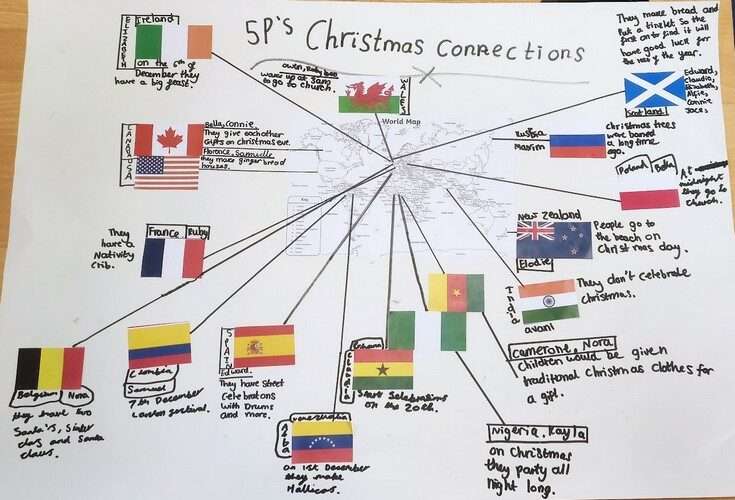 5P's Christmas Connections
Ireland
ELIZABETH
on the 6th of
December they
have a big feast.
wake up at 3am
to go to church.
WALES
World Map
They make bread and
Put a tinslet so the
first on to find it will
have good luck for
the rest of the year.
Edward,
Claudia,
Elizabeth,
Alfie,
Connie
Jack.
Scotland
CANADA
Bella, Connie
They give each other
Gifts on christmas eve.
USA
Florence, Samuelle
they make ginger bread
houses.
Russia
Maxim
christmas trees
were baned
a long time
ago.
Poland
Bella
At
midnight
they go to
Church.
They
have a
Nativity
Crib.
France Ruby
New Zealand
Elodie
People go to
the beach on
Christmas day.
India
avani
They don't celebrate
Christmas.
Belgium Nora
they have two
Santa's, Sinter
clays and Santa
claus.
Clombia
Samuel
7th December
Lanton festival.
SPAIN
Edward.
They have street
Celebratons
with Drums
and more.
Start Selebrations
on the 20th.
Venezuelia
Alba
on 1st December
they make
Hallicas.
Cameront, Nora
Children would be given
traditional Christmas clothes for
a gift.
Nigeria, Kayla
on Christmas
they party all
Night long.